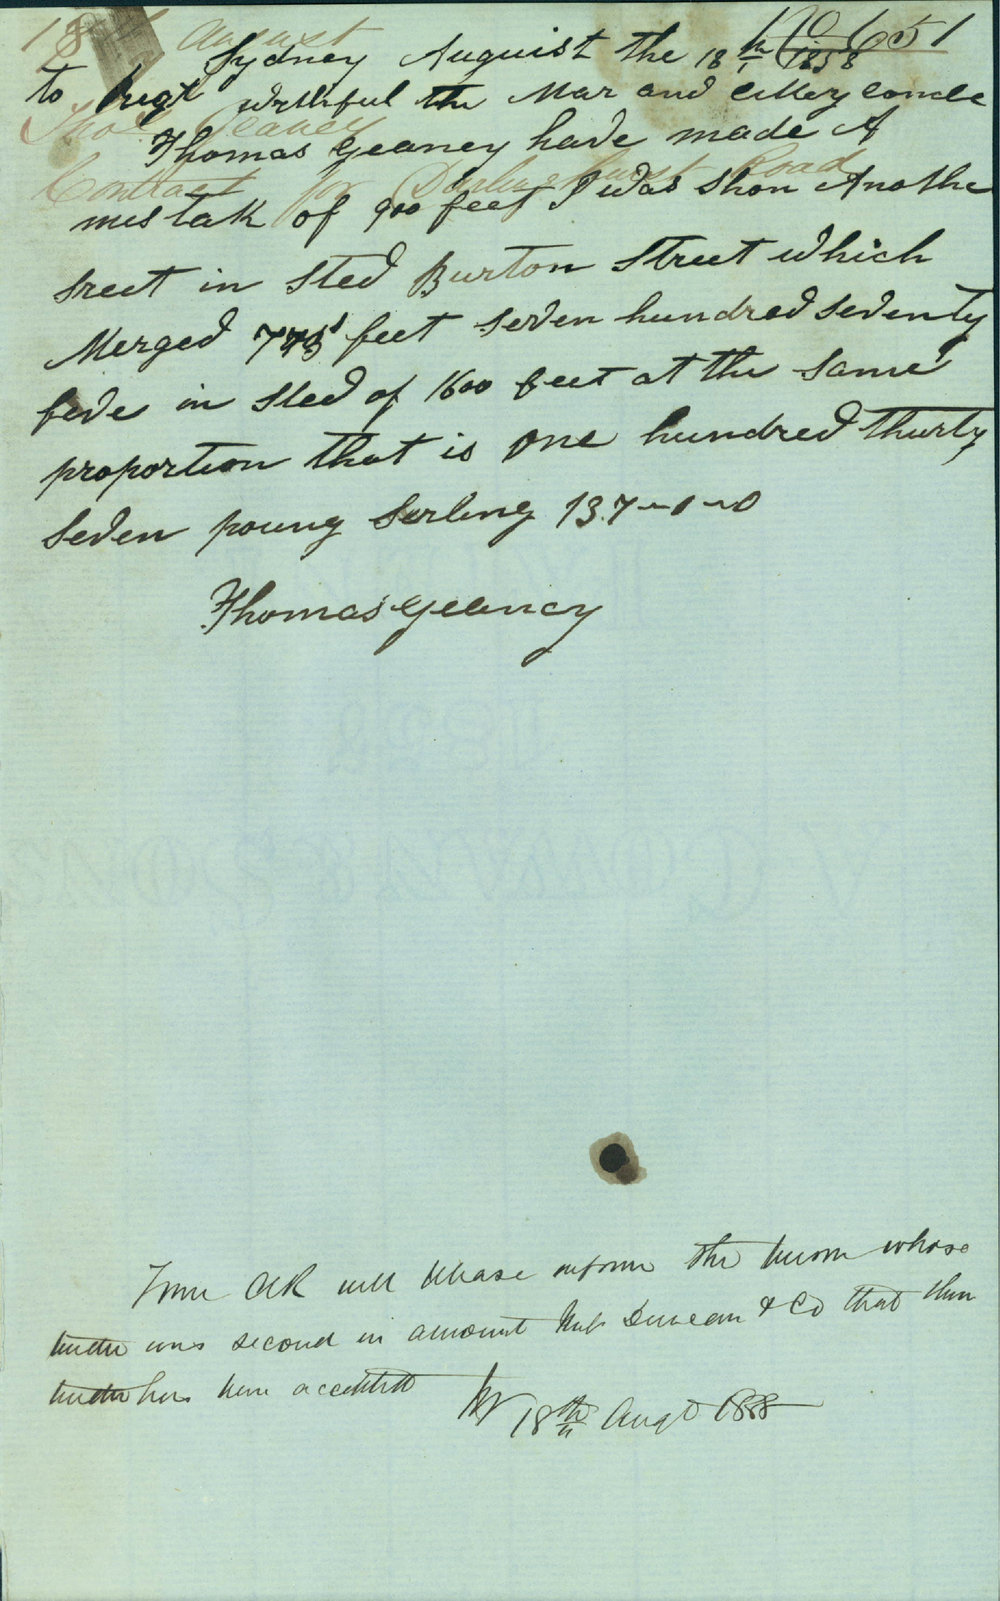 No 651
18 August
Sydney Auguist the 18th 1858
to Right wrthful the Mar and
Thos Geaney
Thomas Geaney have made A
Contract for Darlinghurst Road
mistak of 900 feet I was shon Anothe
sreet in sted Burton Street which
Merged 775 feet seven hundred seventy
feve in sted of 1600 feet at the same
proportion that is one hundred thurty
seven poung Serling 137-1-0
Thomas Geaney
Town Clk will please inform the person whose
tender was second in amount Duncan & Co that their
tender has been accepted
18th Augt 1858